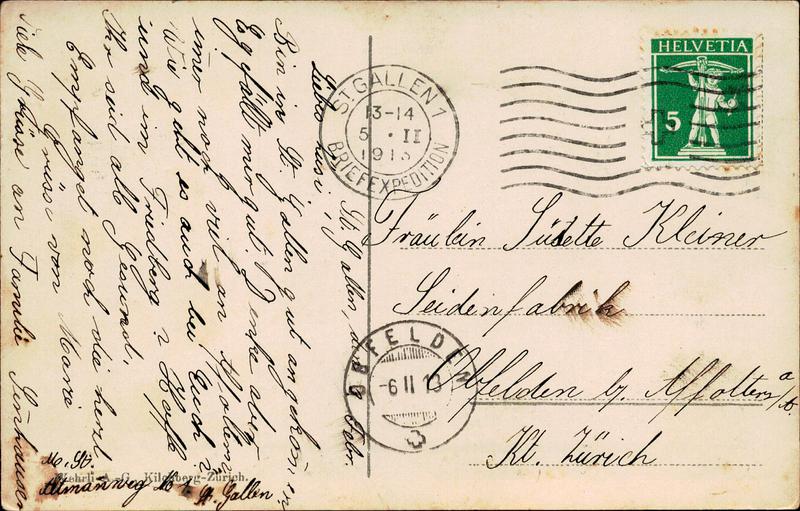 St. Gallen, d. Febr.
Liebe Susi!
Bin in St. Gallen gut angekommen
Es gefällt mir gut. Denke aber
imer noch viel an Ottikon.
Wie geht es auch bei Euch
und im Friedberg? Hoffe
Ihr seid alle Gesund.
Empfanget noch die herzl
Grüsse von Maria
Viele Grüsse an Familie
M. St.
St. Gallen
Wehrli A.-G., Kilchberg-Zürich.
ST. GALLEN 1
13-14
5 · II
1913
BRIEFEXPEDITION
HELVETIA
5
Fräulein Süsette Kleiner
Seidenfabrik
Obfelden b. Affoltern a/A.
Kt. Zürich
OBFELDEN
-6 II 13